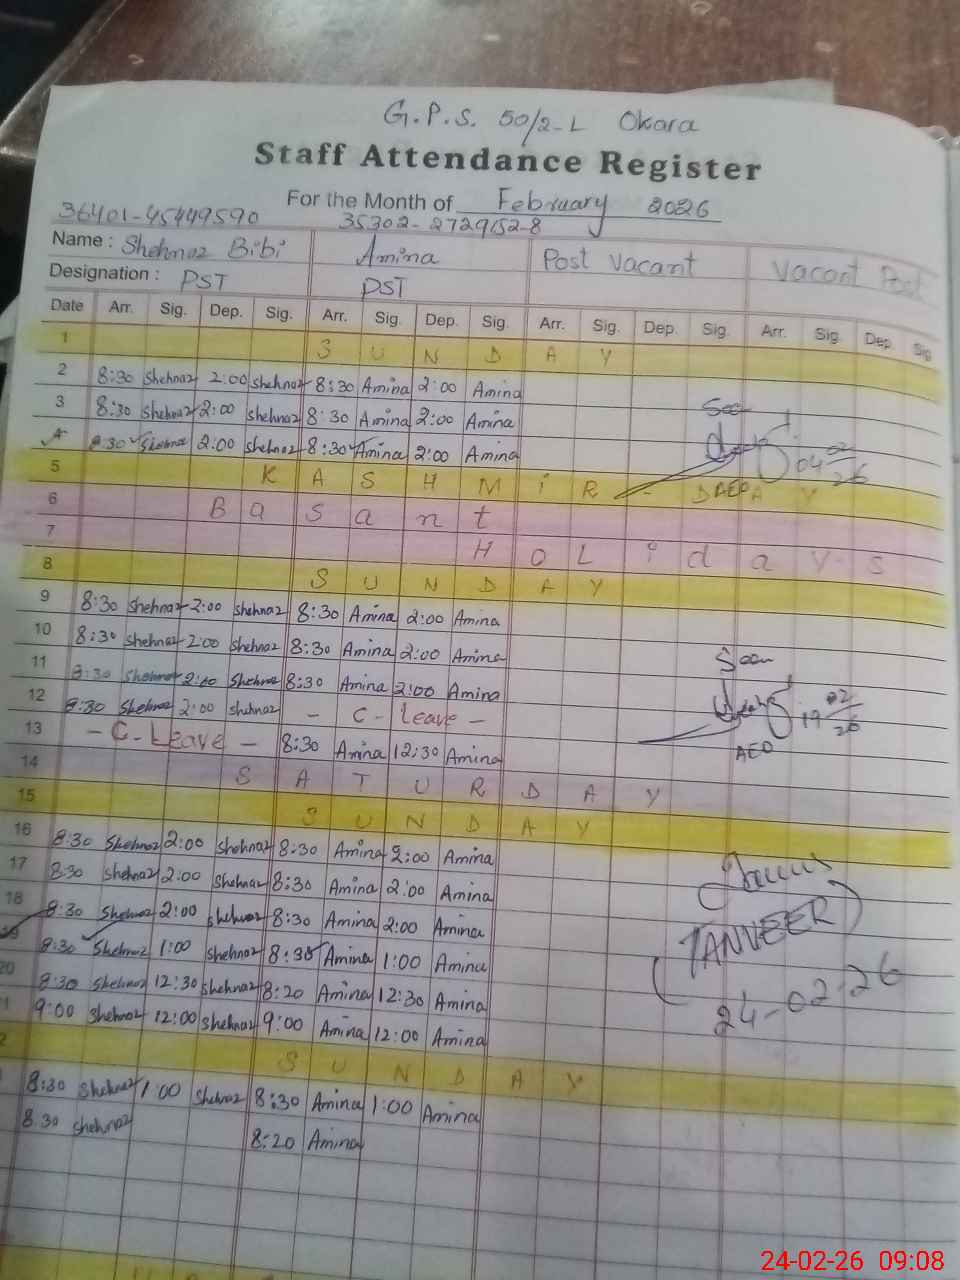 G.P.S. 50/2-L Okara
Staff Attendance Register
For the Month of February 2026
36401-45449590 35302-2729152-8
Name : Shehnaz Bibi Amina Post Vacant Vacant Post
Designation : PST PST
Date Arr. Sig. Dep. Sig. Arr. Sig. Dep. Sig. Arr. Sig. Dep. Sig. Arr. Sig. Dep. Sig
1 S U N D A Y
2 8:30 Shehnaz 2:00 Shehnaz 8:30 Amina 2:00 Amina
3 8:30 Shehnaz 2:00 Shehnaz 8:30 Amina 2:00 Amina Seen
4 8:30 Shehnaz 2:00 Shehnaz 8:30 Amina 2:00 Amina 04-02-26
5 K A S H M i R - D A Y AEO
6 B a s a n t
7 H O L i d a y s
8 S U N D A Y
9 8:30 Shehnaz 2:00 Shehnaz 8:30 Amina 2:00 Amina
10 8:30 Shehnaz 2:00 Shehnaz 8:30 Amina 2:00 Amina Seen
11 8:30 Shehnaz 2:00 Shehnaz 8:30 Amina 2:00 Amina
12 8:30 Shehnaz 2:00 Shehnaz - C- Leave - 19-02-26
13 - C- Leave - 8:30 Amina 12:30 Amina AEO
14 S A T U R D A Y
15 S U N D A Y
16 8:30 Shehnaz 2:00 Shehnaz 8:30 Amina 2:00 Amina
17 8:30 Shehnaz 2:00 Shehnaz 8:30 Amina 2:00 Amina
18 8:30 Shehnaz 2:00 Shehnaz 8:30 Amina 2:00 Amina (TANVEER)
19 8:30 Shehnaz 1:00 Shehnaz 8:30 Amina 1:00 Amina
20 8:30 Shehnaz 12:30 Shehnaz 8:20 Amina 12:30 Amina 24-02-26
1 9:00 Shehnaz 12:00 Shehnaz 9:00 Amina 12:00 Amina
2 S U N D A Y
8:30 Shehnaz 1:00 Shehnaz 8:30 Amina 1:00 Amina
8:30 Shehnaz 8:20 Amina
24-02-26 09:08